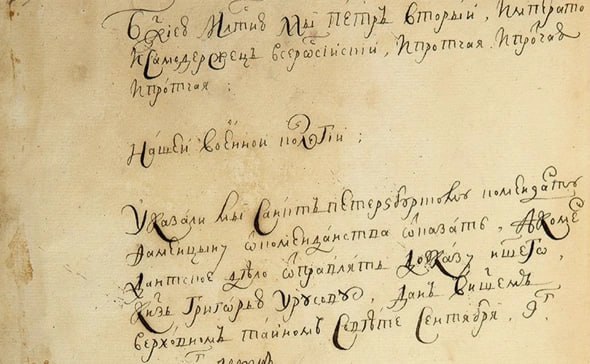 Бж҃іею Млтию Мы Петръ вторыи, Императо
И Самодержецъ всеросїискїи, Ипротчая Ипротчая
Ипротчая:
Нашеи военнои колегїи:
Указали мы Санктъ петерзбургскому коменданту
откомендантства отказать, Аkоме
дантское дѣло отправлять доуказу нш҃его,
Кн҃зь Григорью Урусову, данъ внш҃емъ
верховномъ таиномъ Совѣте Сентября, 9г